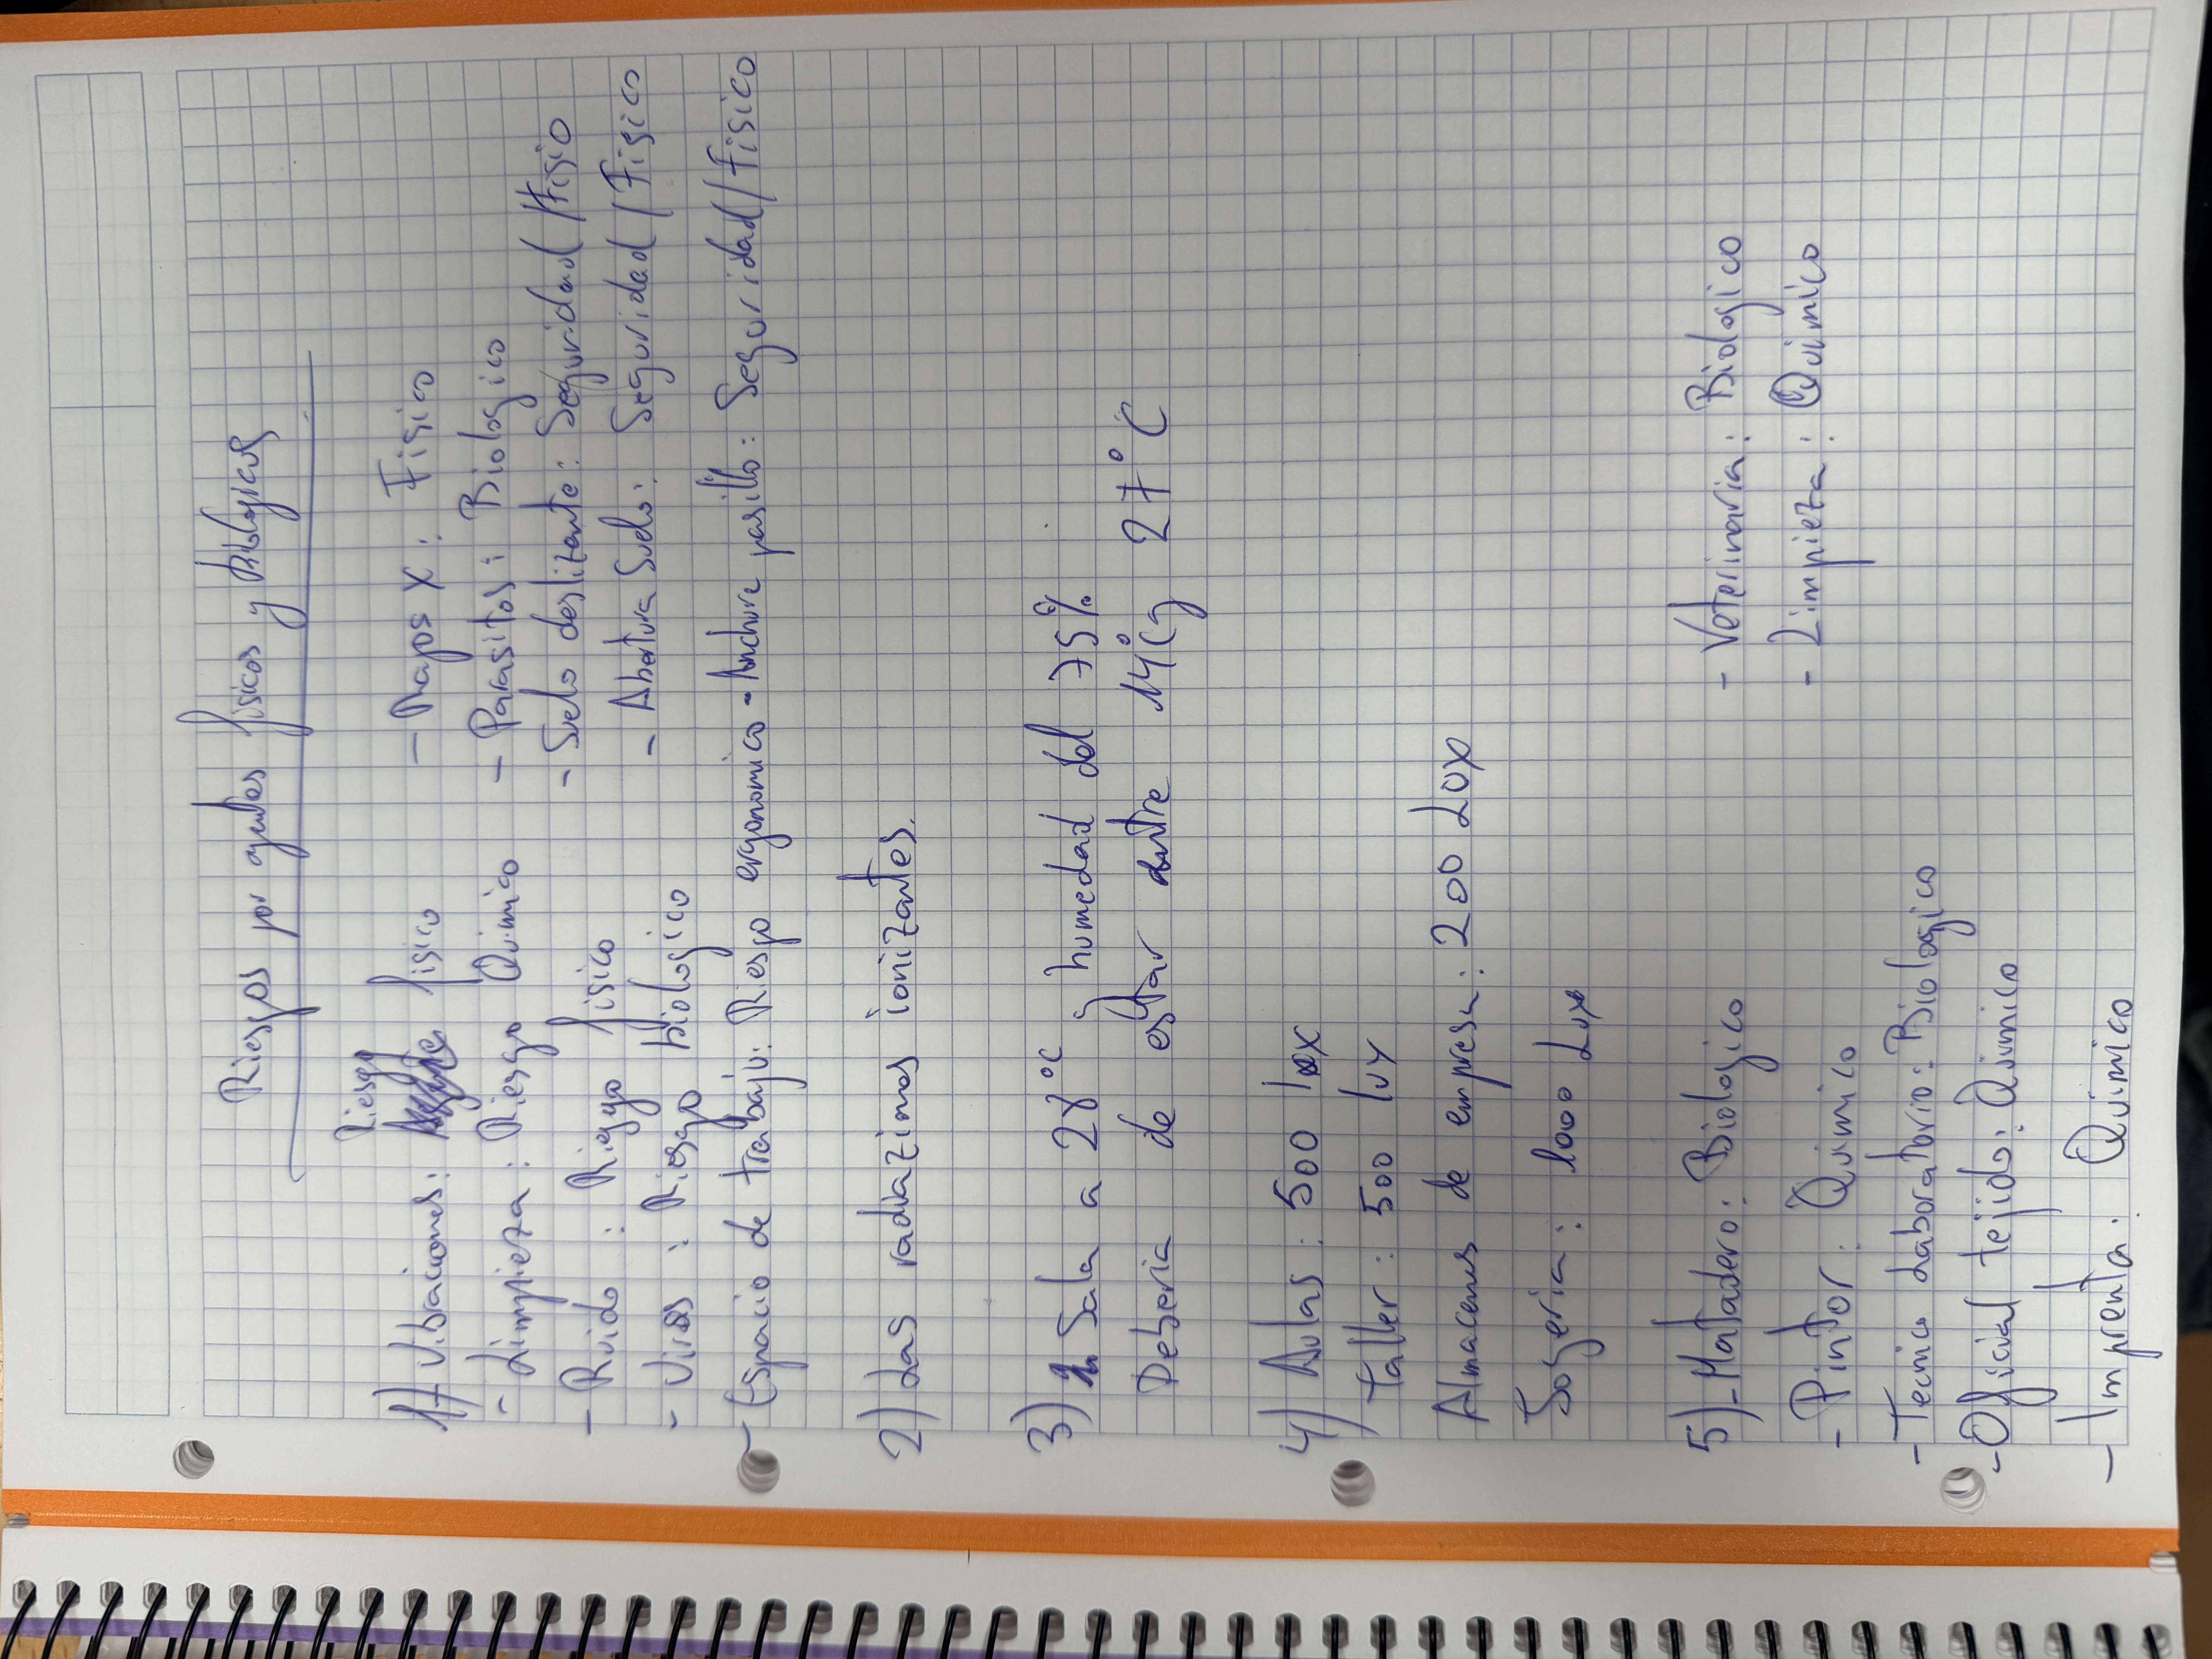 Riesgos por agentes fisicos y biologicos
Riesgo
1)- Vibraciones: fisico
- Limpieza: Riesgo Quimico
- Ruido : Riesgo fisico
- Virus : Riesgo biologico
- Espacio de trabajo: Riesgo ergonomico
- Rayos X : Fisico
- Parasitos : Biologico
- Suelo deslizante: Seguridad / Fisio
- Abertura Suelo: Seguridad / Fisico
- Anchura pasillo: Seguridad / Fisico
2) Las radiaziones ionizantes.
3) Sala a 28°C y humedad del 75%
Deberia de estar entre 14°C y 27°C
4) Aulas: 500 lux
Taller: 500 lux
Almacenes de empresa: 200 Lux
Joyeria: 1000 Lux
5)- Matadero: Biologico
- Pintor: Quimico
- Tecnico Laboratorio: Biologico
- Oficial tejido: Quimico
- Imprenta: Quimico
- Veterinaria: Biologico
- Limpieza: Quimico